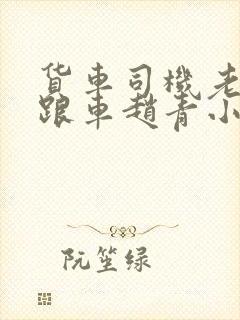 货车司機老
跟車趙青小
阮笙绿